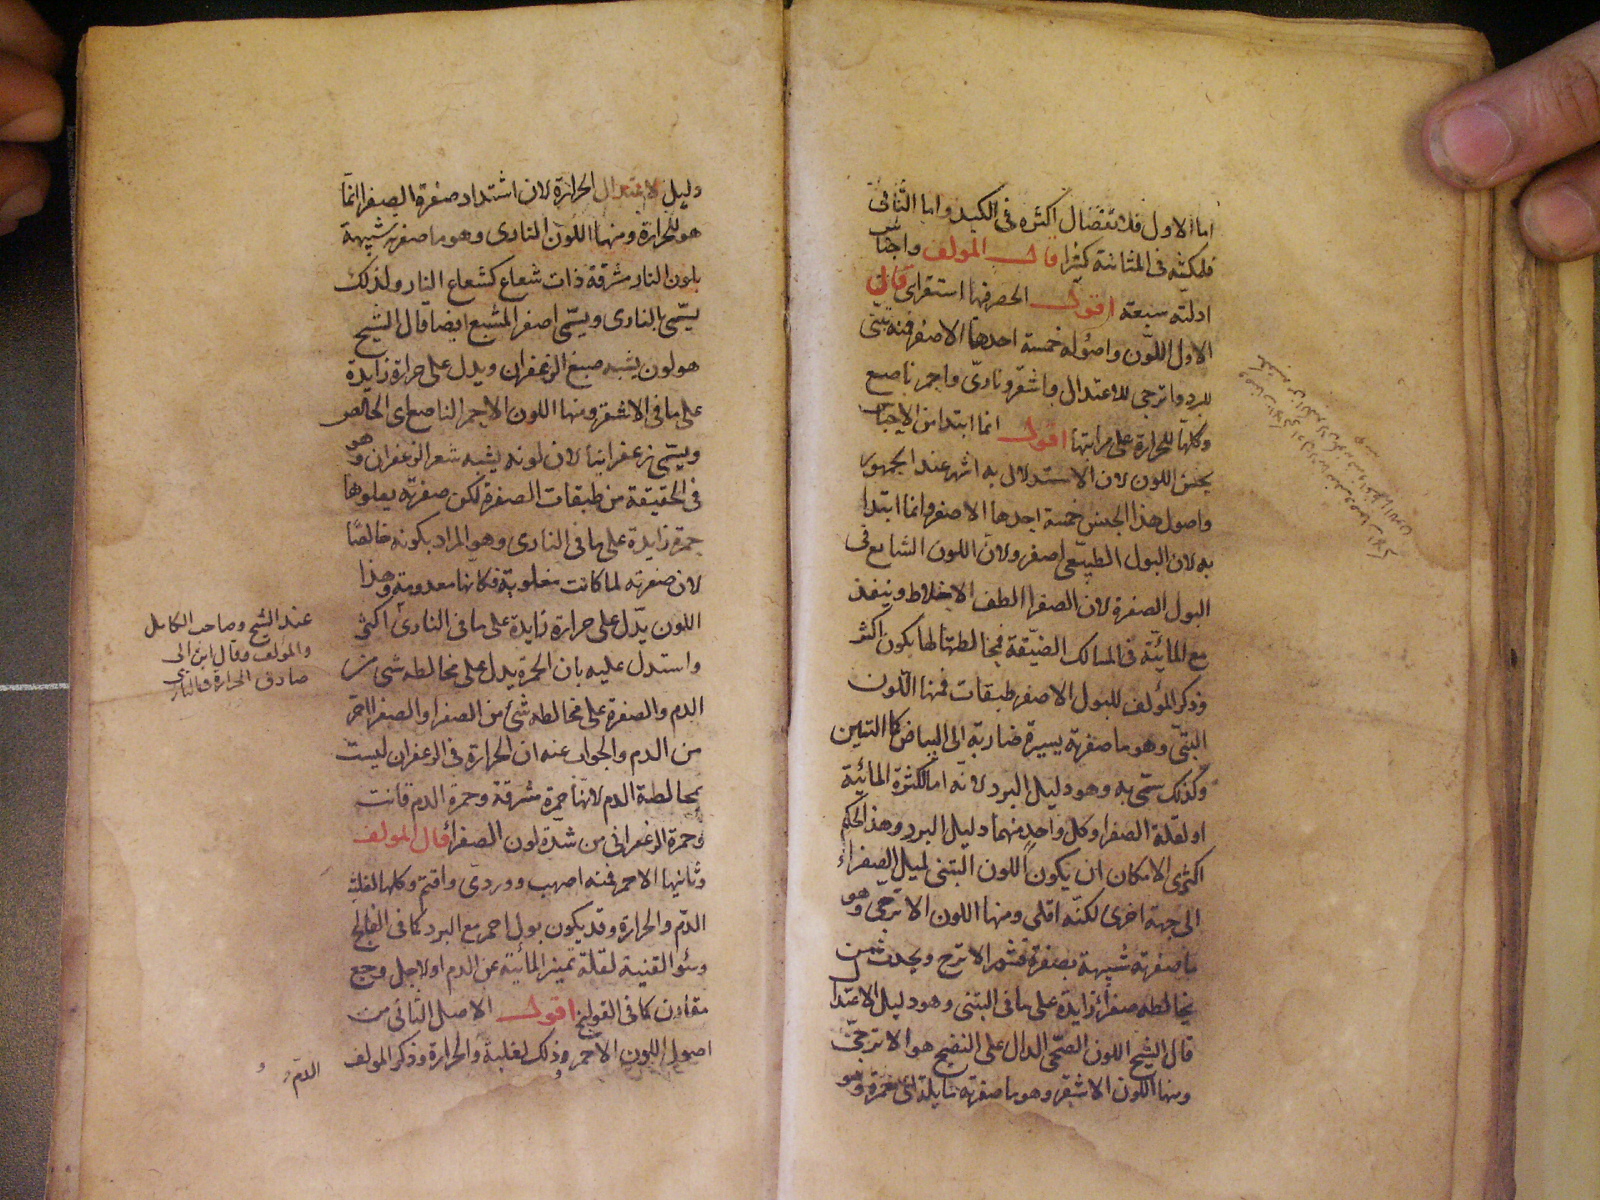 اما الاول فلانفصال اكثره فى الكبد واما الثانى
فلمكثه فى المثانة كثيرا قال المولف واجناس
ادلته سبعة اقول الحصر فيها استقراى قال
الاول اللون واصوله خمسة احدها الاصفر فمنه تبنى
للبرد واترجى للاعتدال واشقر ونارى واحمر ناصع
وكلها للحرارة على مراتبها اقول انما ابتدا من الاجناس
بجنس اللون لان الاستدلال به اشهر عند الجمهور
واصول هذا الجنس خمسة احدها الاصفر وانما ابتدا
به لان البول الطبيعى اصفر ولان اللون الشايع فى
البول الصفرة لان الصفرا الطف الاخلاط وينفذ
مع المائية فى المسالك الضيقة فمخالطتها لها يكون اكثر
وذكر المؤلف للبول الاصفر طبقات فمنها اللون
التبنى وهو ما صفرته يسيرة ضاربة الى البياض كالتبن
وكذلك سمى به وهو دليل البرد لانه اما لكثرة المائية
او لقلة الصفرا وكل واحد منهما دليل البرد وهذا الحكم
اكثرى لامكان ان يكون اللون التبنى لميل الصفراء
الى جهة اخرى لكنه اقلى ومنها اللون الاترجى وهو
ما صفرته شبيهة بصفرة قشر الاترج ويحدث من
مخالطه صفراء زايدة على ما فى التبنى وهو دليل الاعتدا
قال الشيخ اللون الصحى الدال على النضج هو الاترجى
ومنها اللون الاشقر وهو ما صفرته مايلة الى حمرة وهو
دليل لاعتدال الحرارة لان اشتداد صفرة الصفرا انما
هو للحرارة ومنها اللون النارى وهو ما صفرته شبيهة
بلون النار مشرقة ذات شعاع كشعاع النار ولذلك
يسمى بالنارى ويسمى اصفر المشبع ايضا قال الشيخ
هو لون يشبه صبغ الزعفران ويدل على حرارة زايدة
على ما فى الاشقر ومنها اللون الاحمر الناصع اى الخالص
ويسمى زعفرانيا لان لونه يشبه شعر الزعفران وهو
فى الحقيقة من طبقات الصفرة لكن صفرته يعلوها
حمرة زايدة على ما فى النارى وهو المراد بكونه خالصا
لان صفرته لما كانت مغلوبة فكانها معدومة وهذا
اللون يدل على حرارة زايدة على ما فى النارى اكثر
واستدل عليه بان الحمرة يدل على مخالطه شى من
الدم والصفرة على مخالطه شئ من الصفرا والصفرا احر
من الدم والجواب عنه ان الحرارة فى الزعفران ليست
بمخالطة الدم لانها حمرة مشرقة وحمرة الدم قانت
وحمرة الزعفرانى من شدة لون الصفرا قال المولف
وثانيها الاحمر فمنه اصهب ووردى واقتم وكلها لغلبة
الدم والحرارة وقد يكون بول احمر مع البرد كما فى الفالج
وسؤ القنية لقلة تميز المائية عن الدم او لاجل وجع
مقارن كما فى القولنج اقول الاصل الثانى من
اصول اللون الاحمر وذلك لغلبة والحرارة وذكر المولف
الدم
عند الشيخ وصاحب الكامل
والمؤلف وقال ابن ابى
صادق الحرارة فى النارى